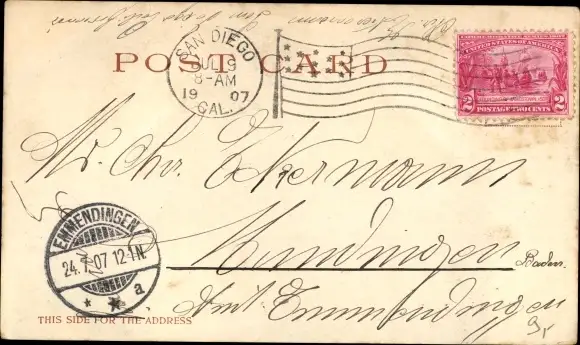 San Diego California
POST CARD
SAN DIEGO
JUL 9
8-AM
1907
CAL.
UNITED STATES OF AMERICA
2 2
POSTAGE TWO CENTS
Mr. Chr. Eckermann
Mundingen
Baden.
Amt. Emmendingen
EMMENDINGEN
24.7.07 12-1N.
* * a
THIS SIDE FOR THE ADDRESS